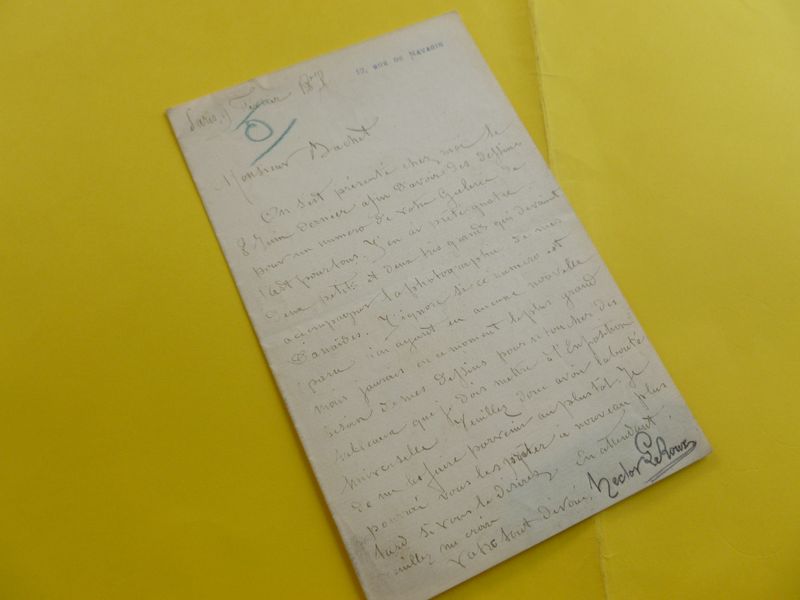 12, RUE DE NAVARIN
Paris,
Monsieur Baschet
On s'est présenté chez moi le
8 Juin dernier afin d'avoir des dessins
pour un numero de votre Galerie de
l'art pour tous. J'en ai prêté quatre
deux petits et deux très grands qui devaient
accompagner la photographie de mes
Danaïdes. J'ignore si ce numero est
paru n'en ayant eu aucune nouvelle
mais j'aurais en ce moment le plus grand
besoin de mes dessins pour retoucher des
tableaux que je dois mettre à l'Exposition
Universelle. Veuillez donc avoir la bonté
de me les faire parvenir au plus tôt. Je
pourrai vous les prêter à nouveau plus
tard si vous le désirez. En attendant,
veuillez me croire
Votre tout dévoué,
Hector Leroux